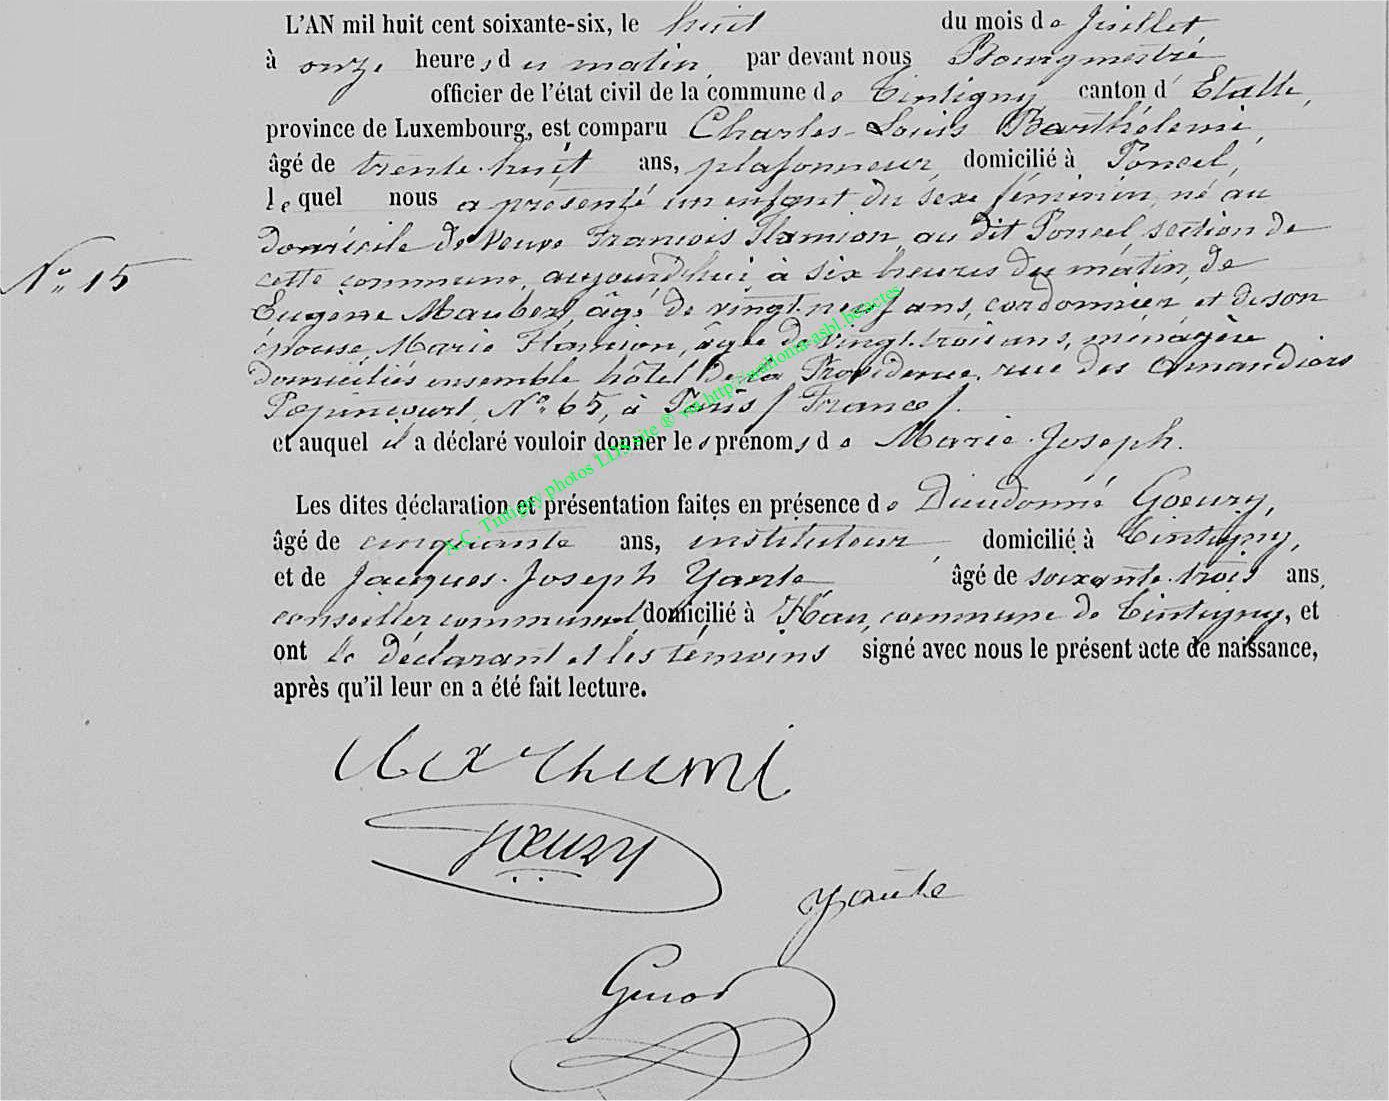 L'AN mil huit cent soixante-six, le huit du mois de Juillet
à onze heures du matin, par devant nous Bourgmestre
officier de l'état civil de la commune de Tintigny canton d'Etalle,
province de Luxembourg, est comparu Charles-Louis Barthélemi,
âgé de trente-huit ans, plafonneur, domicilié à Poncel,
lequel nous a présenté un enfant du sexe féminin, né au
domicile de Veuve François Flamion, au dit Poncel, section de
N° 15
cette commune, aujourd'hui, à six heures du matin, de
Eugène Maubert, âgé de vingt-neuf ans, cordonnier, et de son
épouse, Marie Flamion, âgée de vingt-trois ans, ménagère,
domiciliés ensemble hôtel de la Providence, rue des Amandiers
Popincourt, N° 65, à Paris (France).
et auquel il a déclaré vouloir donner les prénoms de Marie-Joseph.
Les dites déclaration et présentation faites en présence de Dieudonné Goeury,
âgé de cinquante ans, instituteur, domicilié à Tintigny,
et de Jacques-Joseph Yante âgé de soixante-trois ans,
conseiller communal, domicilié à Han, commune de Tintigny, et
ont le déclarant et les témoins signé avec nous le présent acte de naissance,
après qu'il leur en a été fait lecture.
Goeury
Yante
A.C. Tintigny photos LDS site ® via http://walloma-asbl.be/actes